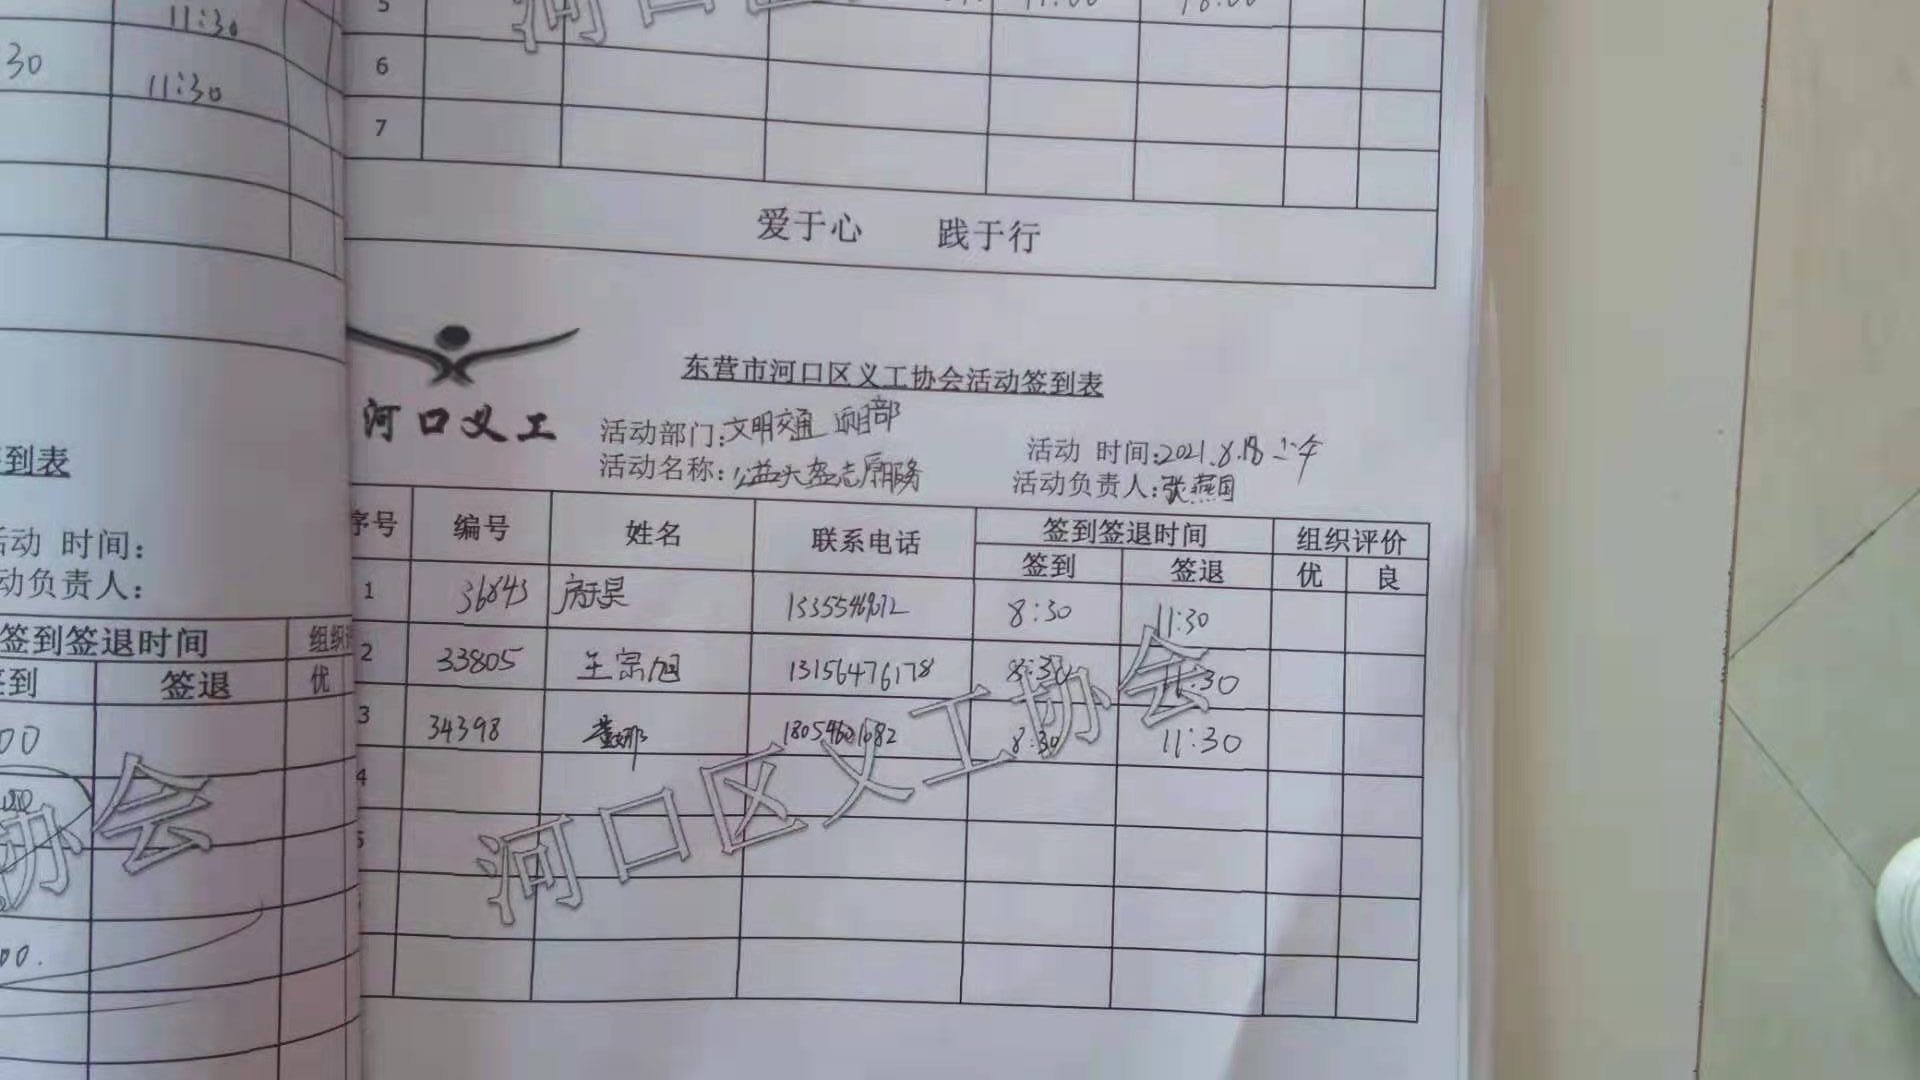 11:30
30
11:30
5
18:00
6
7
爱于心 践于行
河口义工
东营市河口区义工协会活动签到表
活动部门:文明交通
活动 时间:2021.8.18
活动名称:公益头盔志愿服务
活动负责人:张燕国
序号 编号 姓名 联系电话 签到签退时间 组织评价
签到 签退 优 良
1 36843 8:30 11:30
2 33805 王宗旭 13156476178 8:30 11:30
3 34398 8:30 11:30
4
5
河口区义工协会
到表
活动 时间:
动负责人:
签到签退时间 组织
到 签退 优
00
协会
00.